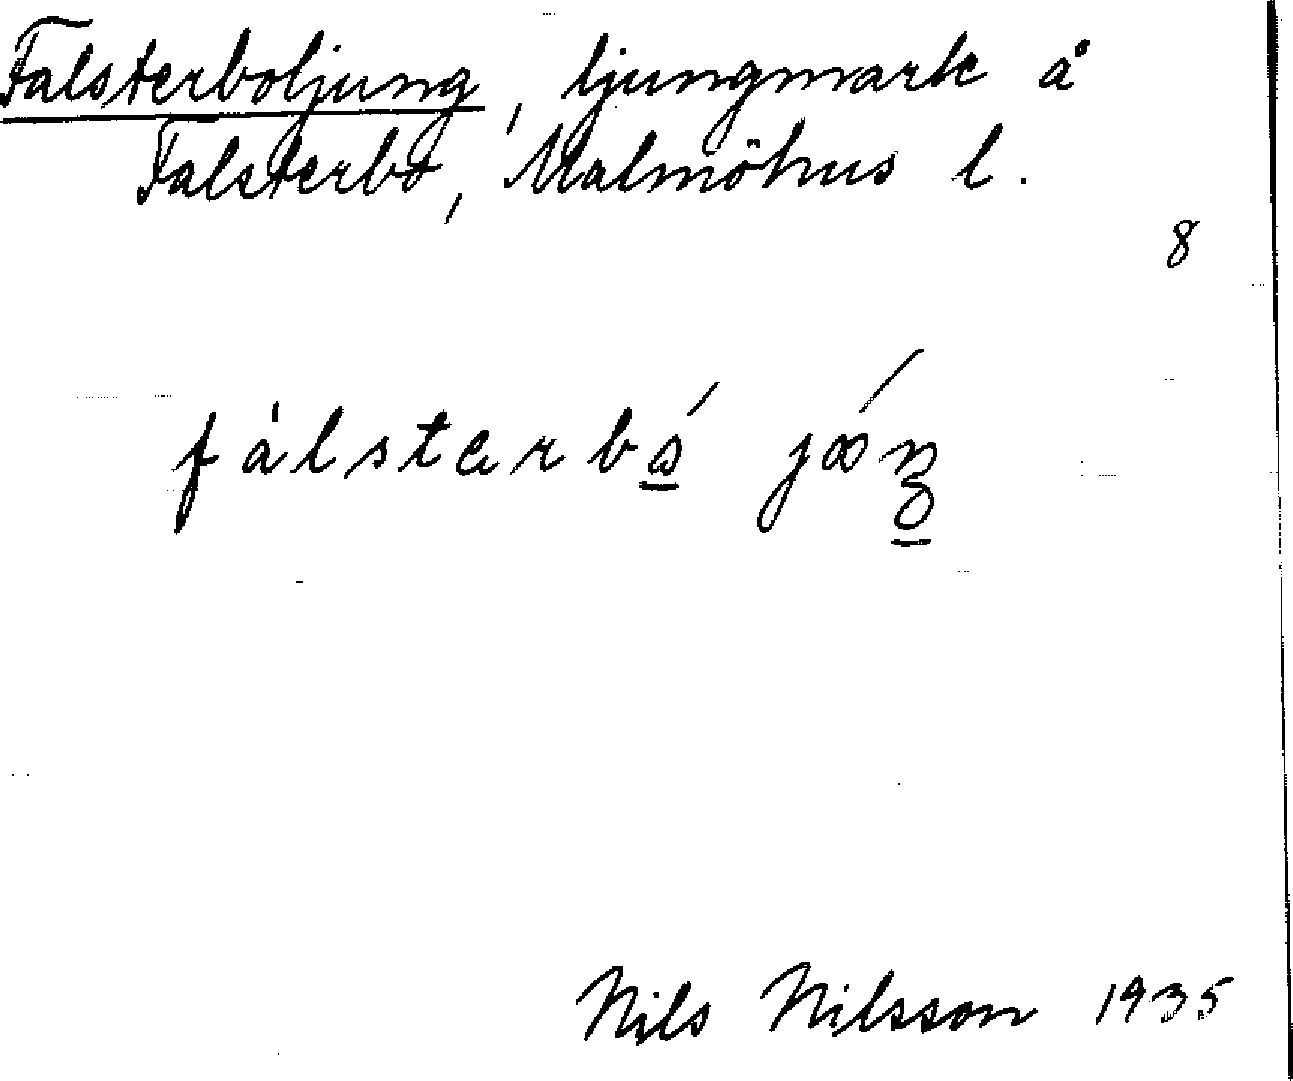 Falsterboljung, ljungmark å
Falsterbo, Malmöhus l.
8
Nils Nilsson 1935